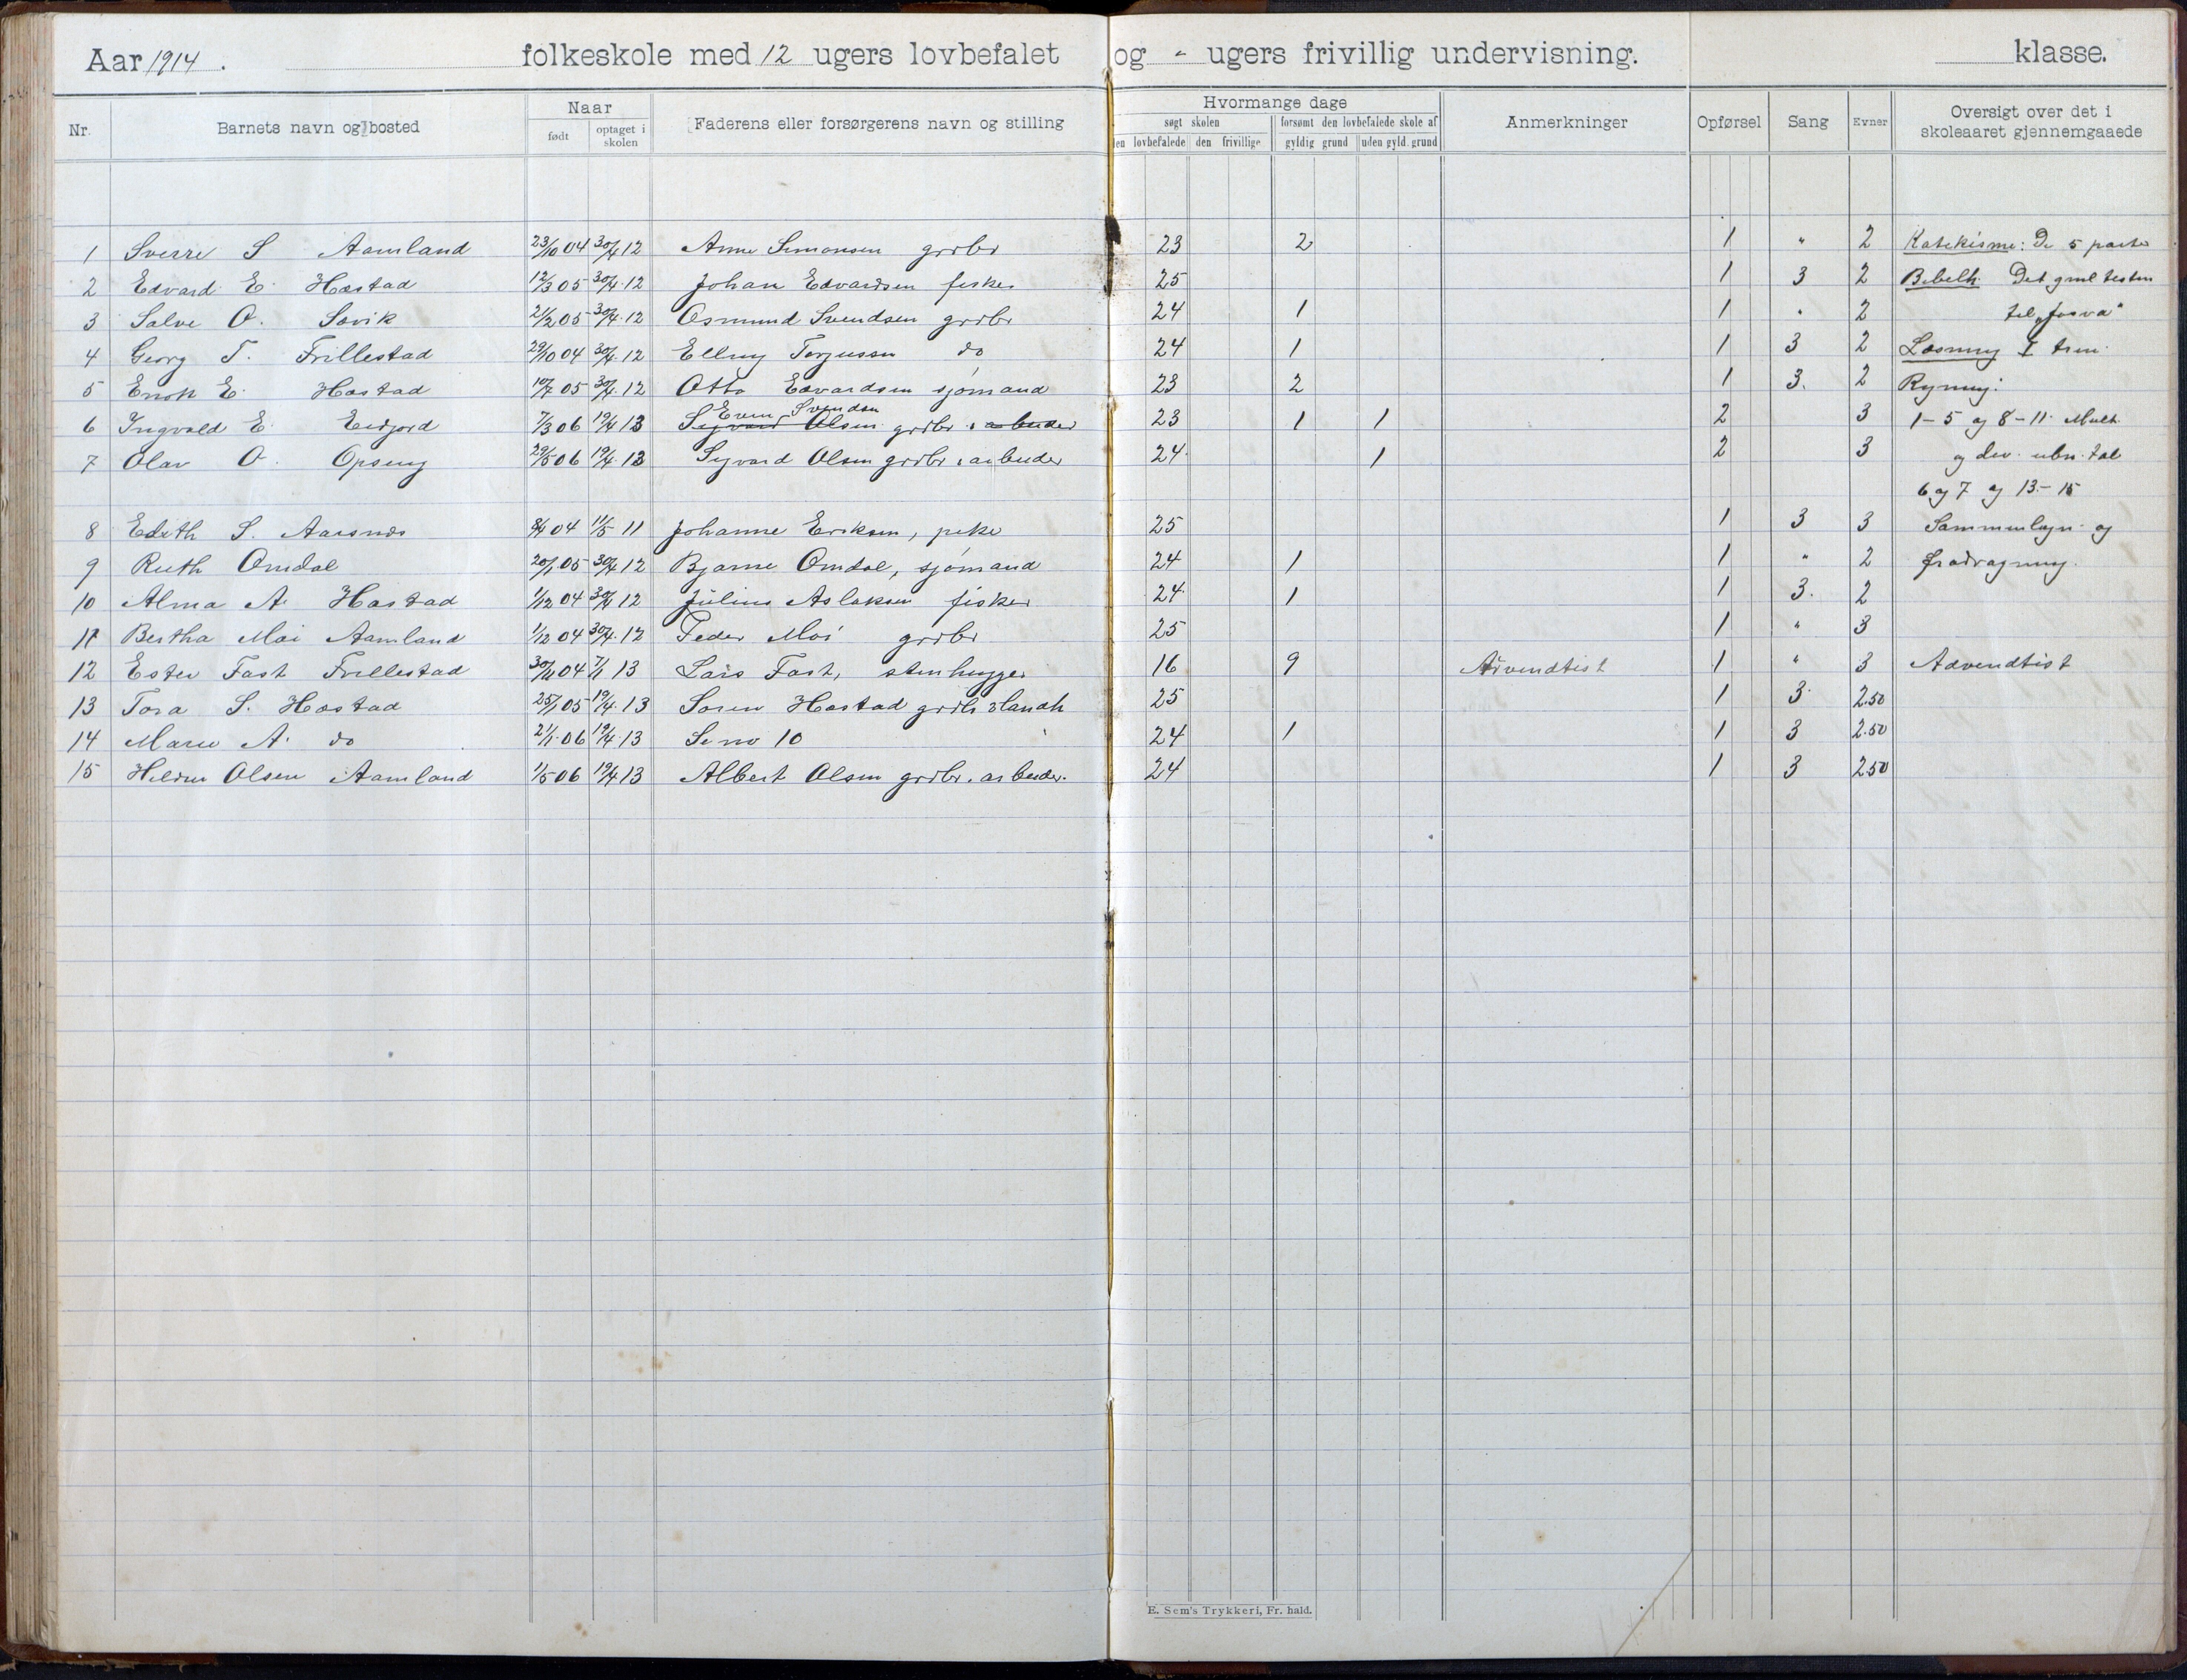 Aar 1914. folkeskole med 12 ugers lovbefalet og - ugers frivillig undervisning. klasse.
Nr. Barnets navn og bosted Naar født optaget i skolen Faderens eller forsørgerens navn og stilling Hvormange dage søgt skolen den lovbefalede den frivillige forsømt den lovbefalede skole af gyldig grund uden gyld. grund Anmerkninger Opførsel Sang Evner Oversigt over det i skoleaaret gjennemgaaede
1 Sverre S Aamland 23/10 04 30/4 12 Anne Simonsen grdbr 23 2 1 " 2 Katekisme: De 5 parter
2 Edvard E. Hæstad 12/3 05 30/4 12 Johan Edvardsen fisker 25 1 3 2 Bibelh. Det gml testm
3 Salve O. Søvik 21/2 05 30/4 12 Osmund Svendsen grdbr 24 1 1 " 2 til „Josva"
4 Georg T. Frillestad 29/10 04 30/4 12 Elling Terjussen do 24 1 1 3 2 Læsning I trin
5 Enok E. Hæstad 10/7 05 30/4 12 Otto Edvardsen sjømand 23 2 1 3. 2 Regning:
6 Ingvald E. Eidjord 7/3 06 19/4 13 Sigvard Olsen Even Svendsen grdbr. arbeider 23 1 1 2 3 1-5 og 8-11. Mult.
7 Olav O. Opseng 29/5 06 19/4 13 Sigvard Olsen grdbr. arbeider 24 1 2 3 og div. ubn. tal
6 og 7 og 13-15
8 Edith S. Aarsnes 8/4 04 11/5 11 Johanne Eriksen, pike 25 1 3 3 Sammenlægn. og
9 Ruth Omdal 20/1 05 30/4 12 Bjarne Omdal, sjømand 24 1 1 " 2 fradragning.
10 Alma A. Hæstad 1/12 04 30/4 12 Julius Aslaksen fisker 24 1 1 3. 2
11 Bertha Moi Aamland 1/12 04 30/4 12 Peder Moi grdbr 25 1 " 3
12 Ester Fast Frillestad 30/11 04 7/1 13 Lars Fast, stenhugger 16 9 Advendtist 1 " 3 Advendtist
13 Tora S. Hæstad 25/1 05 19/4 13 Søren Hæstad grdb. & landh 25 1 3 2.50
14 Marie A. do 21/1 06 19/4 13 Se no 10 24 1 1 3 2.50
15 Heldine Olsen Aamland 1/5 06 19/4 13 Albert Olsen grdbr. arbeider. 24 1 3 2.50
E. Sem's Trykkeri, Fr. hald.